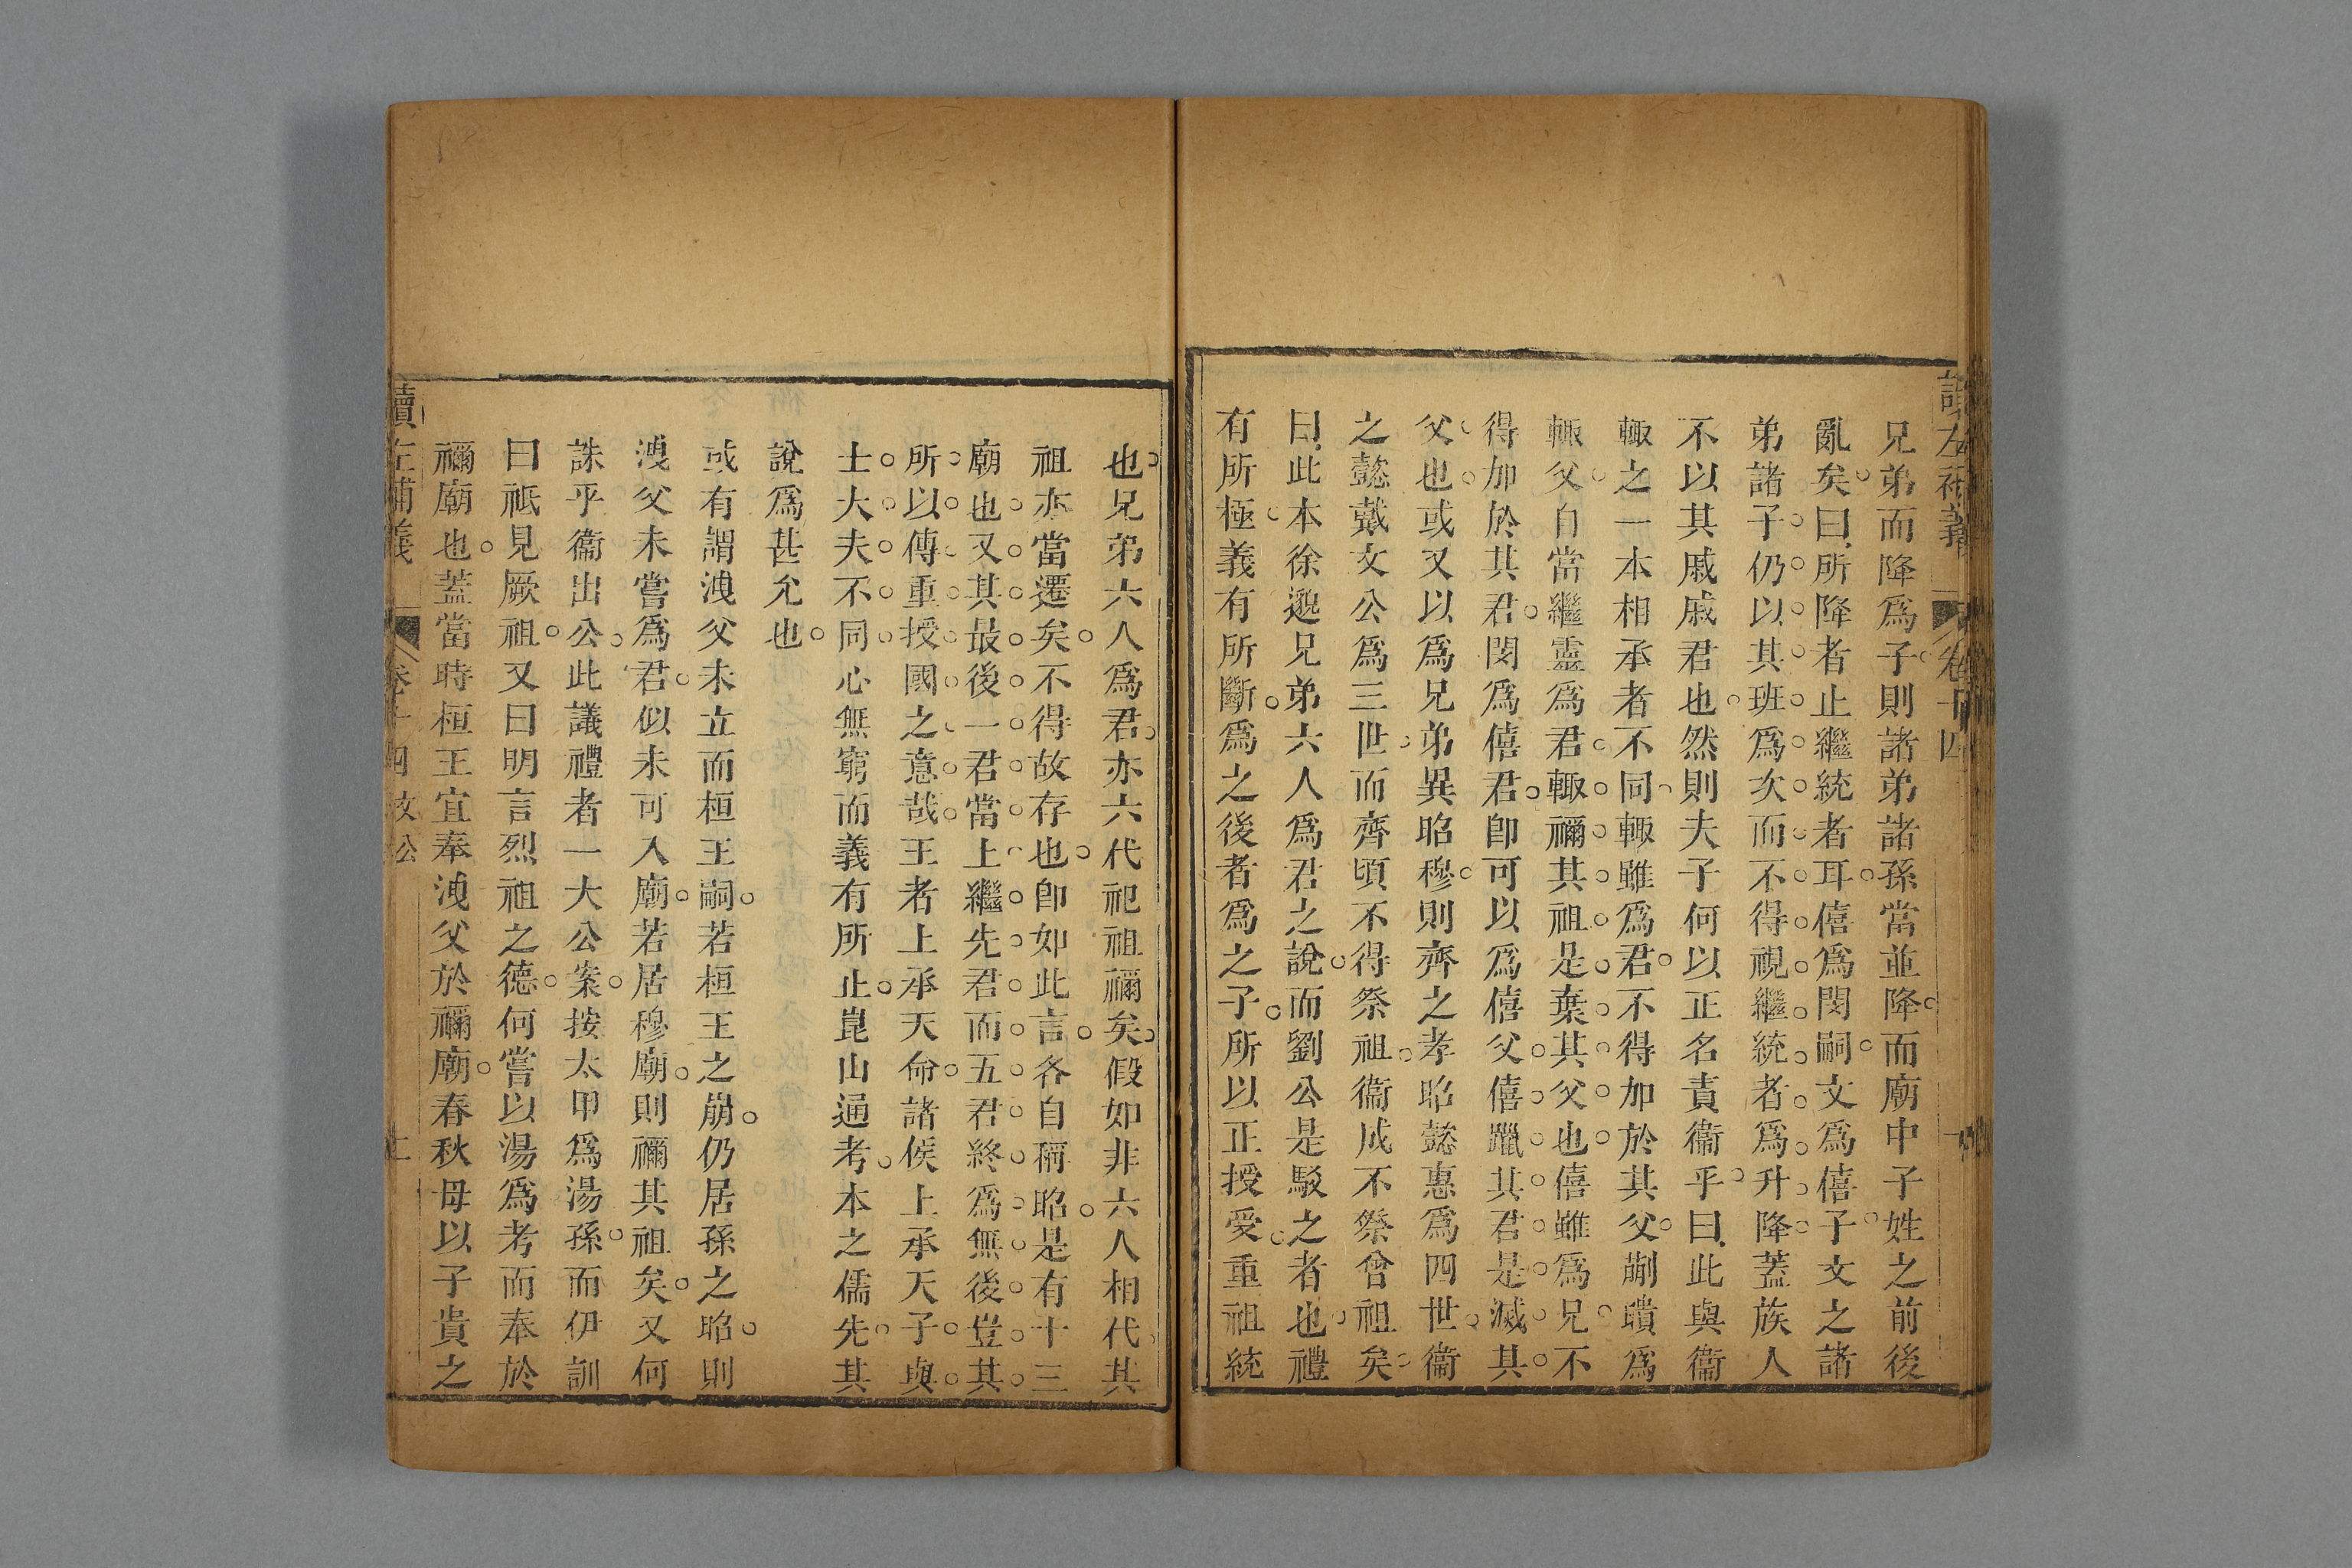 讀左補義 卷十四
兄弟而降爲子則諸弟諸孫當並降而廟中子姓之前後
亂矣曰所降者止繼統者耳僖爲閔嗣文爲僖子文之諸
弟諸子仍以其班爲次而不得視繼統者爲升降蓋族人
不以其戚戚君也然則夫子何以正名責衞乎曰此與衞
輙之一本相承者不同輙雖爲君不得加於其父蒯聵爲
輙父自當繼靈爲君輙禰其祖是棄其父也僖雖爲兄不
得加於其君閔爲僖君卽可以爲僖父僖躐其君是滅其
父也或又以爲兄弟異昭穆則齊之孝昭懿惠爲四世衞
之懿戴文公爲三世而齊頃不得祭祖衞成不祭曾祖矣
曰此本徐邈兄弟六人爲君之說而劉公是駁之者也禮
有所極義有所斷爲之後者爲之子所以正授受重祖統
也兄弟六人爲君亦六代祀祖禰矣假如非六人相代其
祖亦當遷矣不得故存也卽如此言各自稱昭是有十三
廟也又其最後一君當上繼先君而五君終爲無後豈其
所以傳重授國之意哉王者上承天命諸侯上承天子與
士大夫不同心無窮而義有所止崑山通考本之儒先其
說爲甚允也
或有謂洩父未立而桓王嗣若桓王之崩仍居孫之昭則
洩父未嘗爲君似未可入廟若居穆廟則禰其祖矣又何
誅乎衞出公此議禮者一大公案按太甲爲湯孫而伊訓
曰祗見厥祖又曰明言烈祖之德何嘗以湯爲考而奉於
禰廟也蓋當時桓王宜奉洩父於禰廟春秋母以子貴之
讀左補義 卷十四 文公 上